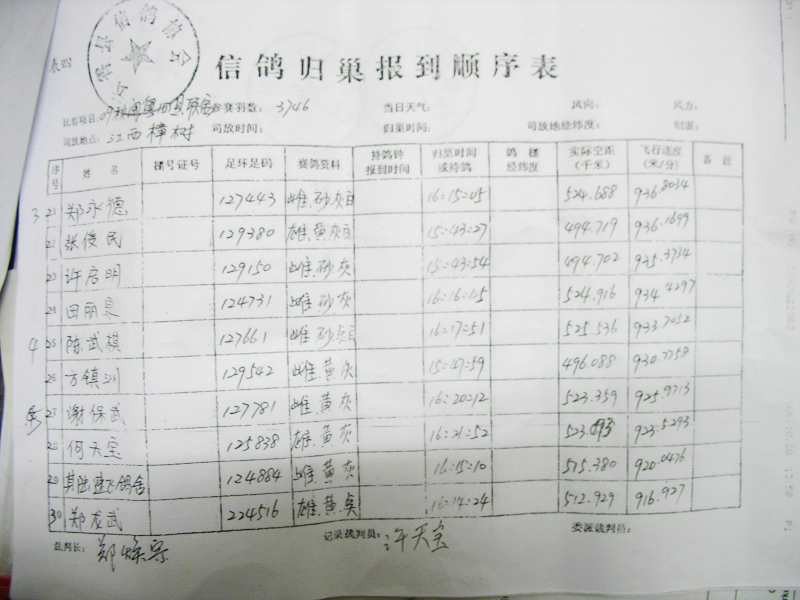 信鸽协会
信鸽归巢报到顺序表
比赛项目: 参赛羽数: 3746 当日天气: 风向: 风力:
司放地点: 江西樟树 司放时间: 归巢时间: 司放地经纬度:
序号 姓名 棚号证号 足环足码 赛鸽资料 持鸽钟报到时间 归巢时间或持鸽 鸽棚经纬度 实际空距(千米) 飞行速度(米/分) 备注
3 21 郑永德 127443 雌.砂灰白 16:15:05 524.688 936.8034
张俊民 129380 雄.黄灰白 15:43:27 494.719 936.1699
23 许启明 129150 雌.砂灰 15:43:54 494.702 935.3734
24 田丽泉 124731 雌.砂灰 16:16:05 524.916 934.4297
4 25 陈武棋 127661 雌.砂灰白 16:17:51 525.536 933.7052
26 方镇川 129542 雌.黄灰 15:47:59 496.088 930.7758
27 谢保武 127781 雌.黄灰 16:20:12 523.359 925.9713
28 何天宝 125838 雄.黄灰 16:21:52 523.093 923.5293
29 鸽舍 124884 雌.黄灰 16:15:10 515.380 920.0476
30 郑友武 224516 雄.黄 16:14:24 512.929 916.927
裁判长: 郑 记录裁判员: 许天宝 委派裁判员: